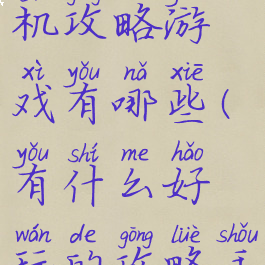 机攻略游
xì yǒu nǎ xiē
戏有哪些(
yǒu shí me hǎo
有什么好
wán de gōng lüè shǒu
玩的攻略手